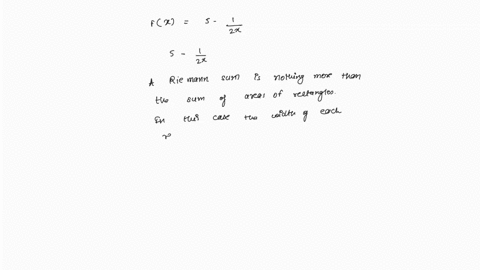 F(x) = 5 - 1/2x
5 - 1/2x
A Riemann sum is nothing more than
the sum of areas of rectangles.
In this case the width of each
r